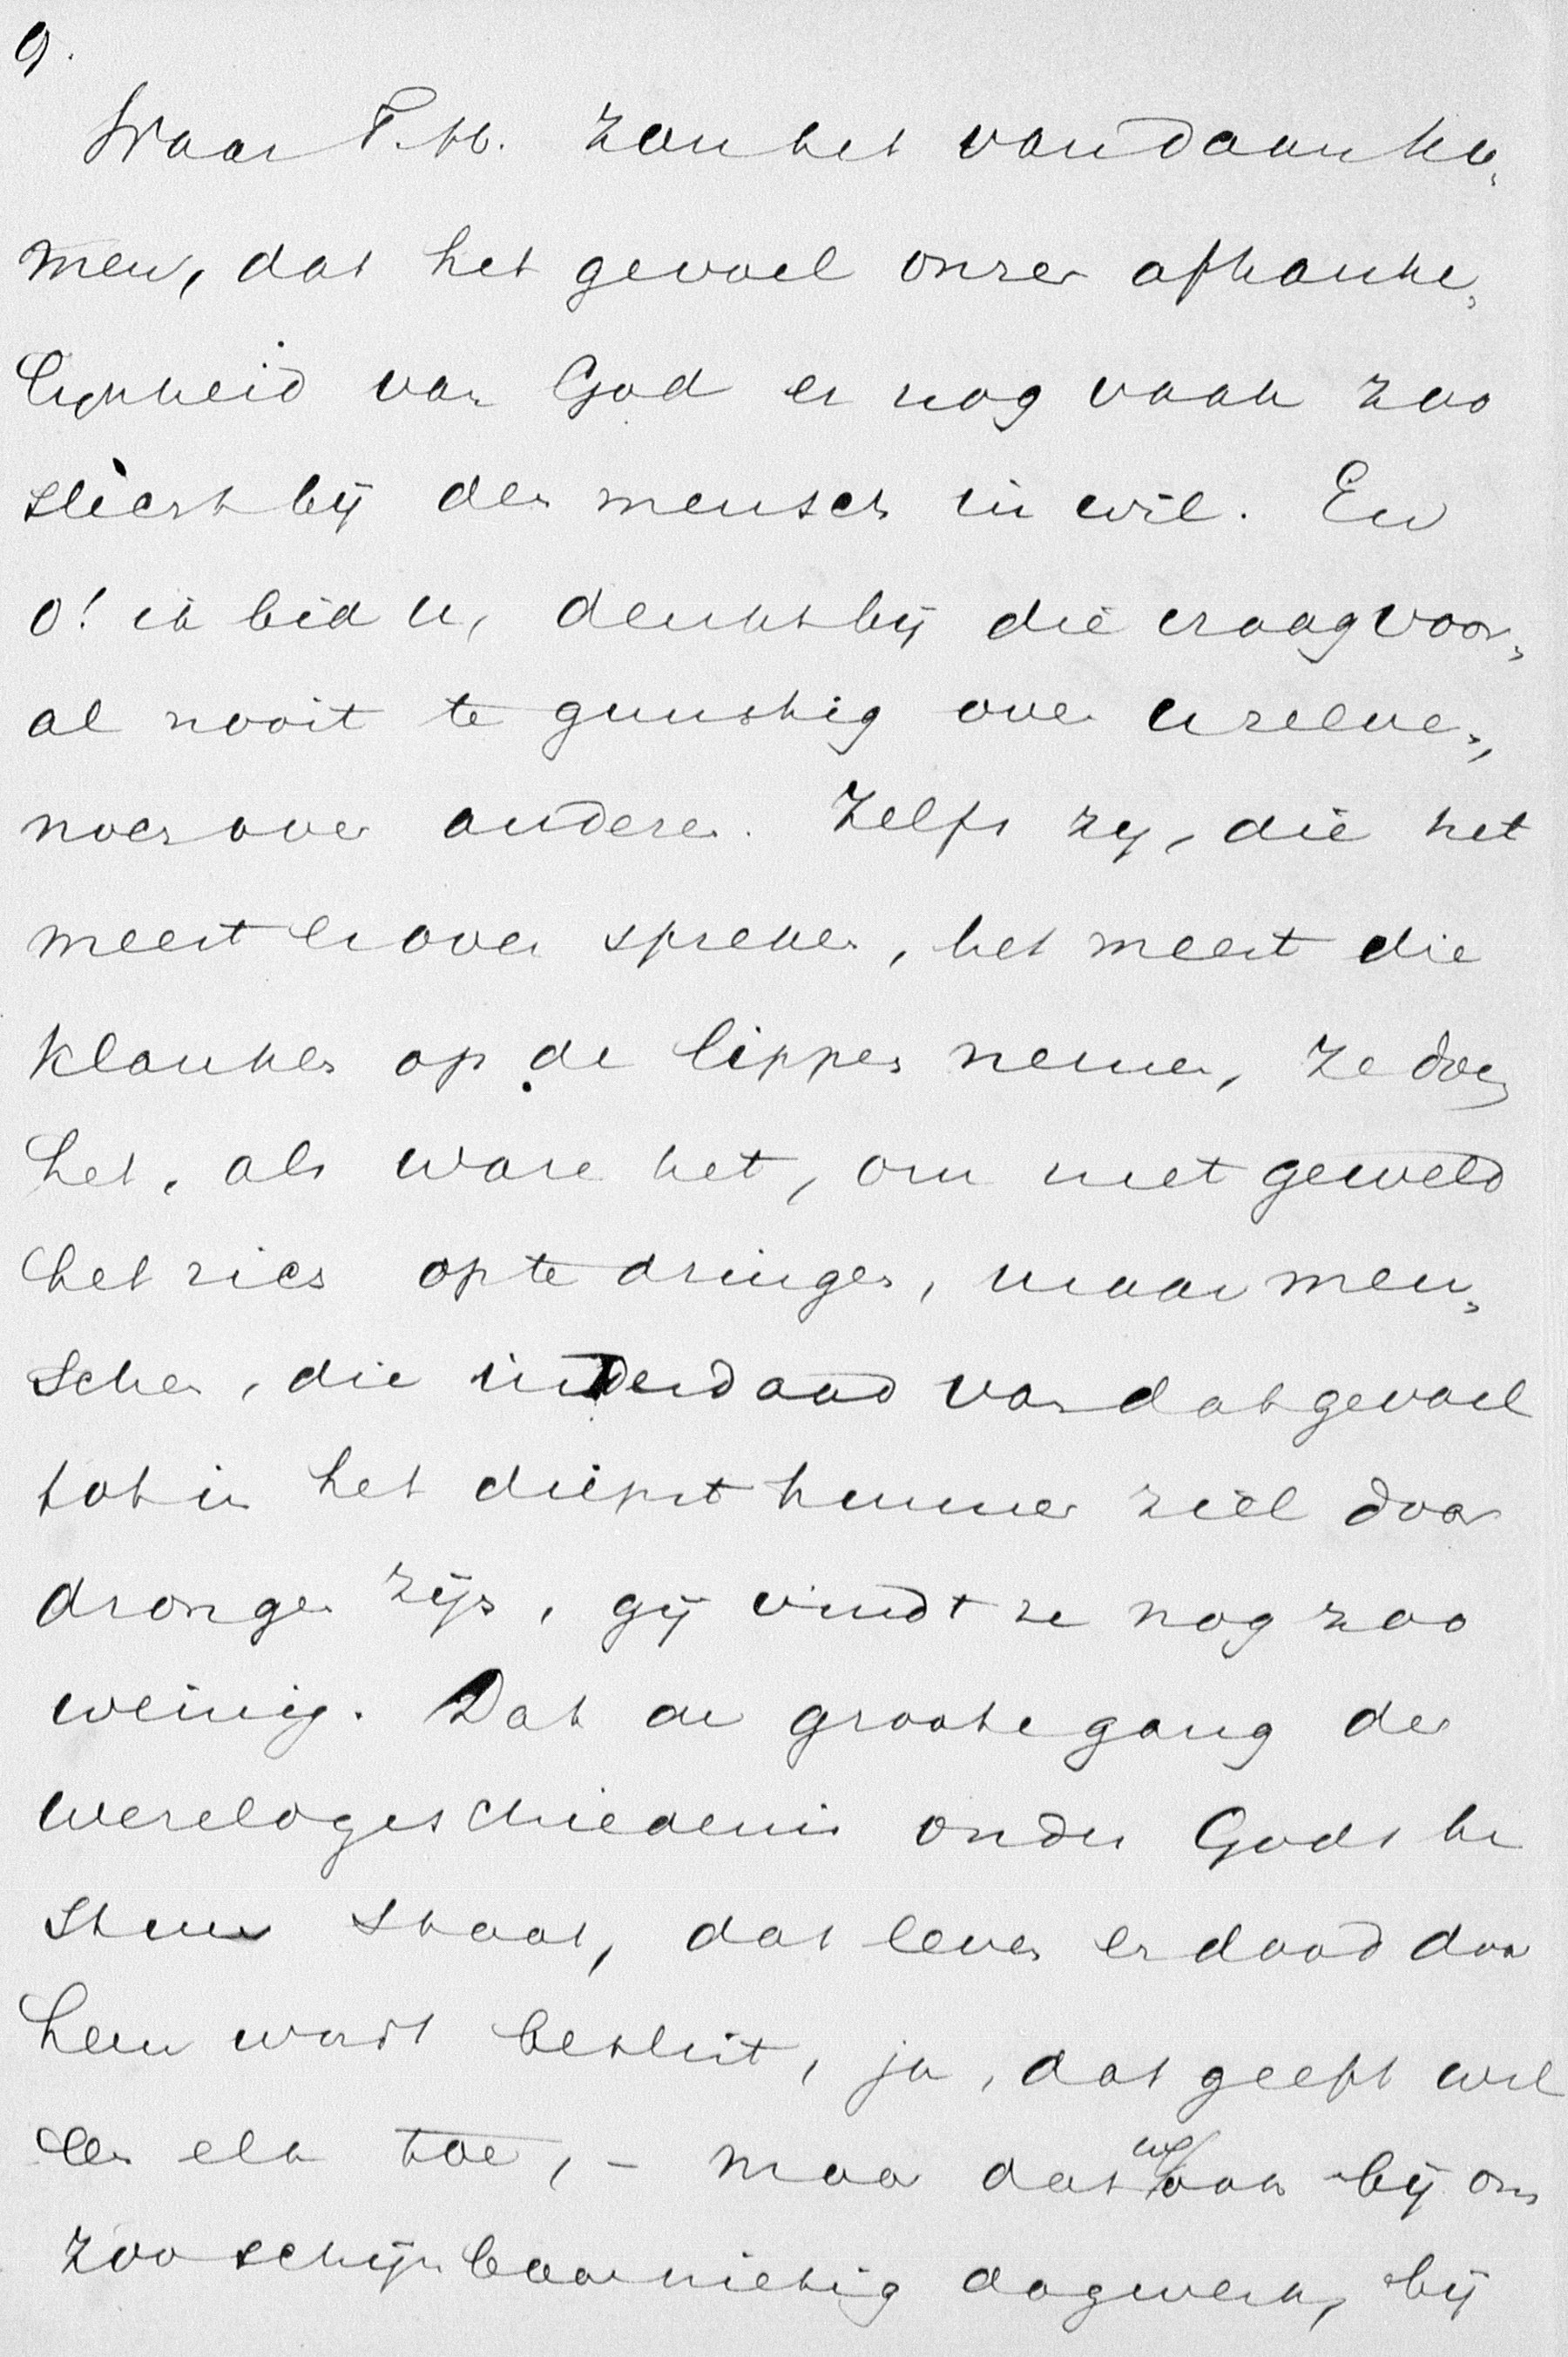 9.
Waar T. H. zou het vandaan ko„
men, dat het gevoel onzer afhanke„
lijkheid van God er nog vaak zoo
slecht bij den mensch in wil. En
o! ik bid u, denkt bij die vraag voor„
al nooit te gunstig over u zelven,
noch over anderen. Zelfs zij, die het
meest er over spreken, het meest die
klanken op de lippen nemen, ze doen
het, als ware het, om met geweld
het zich op te dringen, maar men„
schen, die inderdaad van dat gevoel
tot in het diepst hunner ziel door
drongen zijn, gij vindt ze nog zoo
weinig. Dat de groote gang der
wereldgeschiedenis onder Gods be
stuur staat, dat leven en dood door
hem wordt beslist, ja, dat geeft wel
een elk toe, – maar dat wij ook bij ons
zoo schijnbaar nietig dagwerk, bij